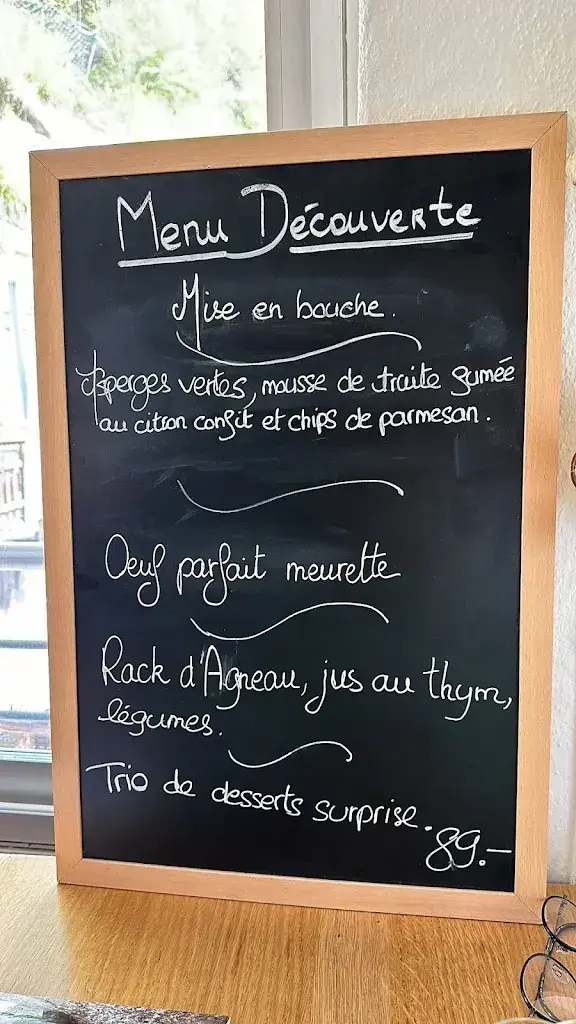 Menu Découverte
Mise en bouche.
Asperges vertes, mousse de truite fumée
au citron confit et chips de parmesan.
Oeuf parfait meurette
Rack d'Agneau, jus au thym,
légumes.
Trio de desserts surprise.
89.-